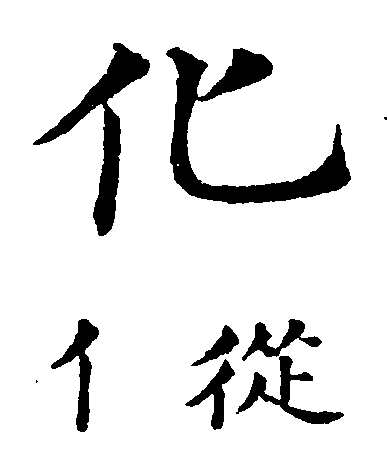 化
從亻